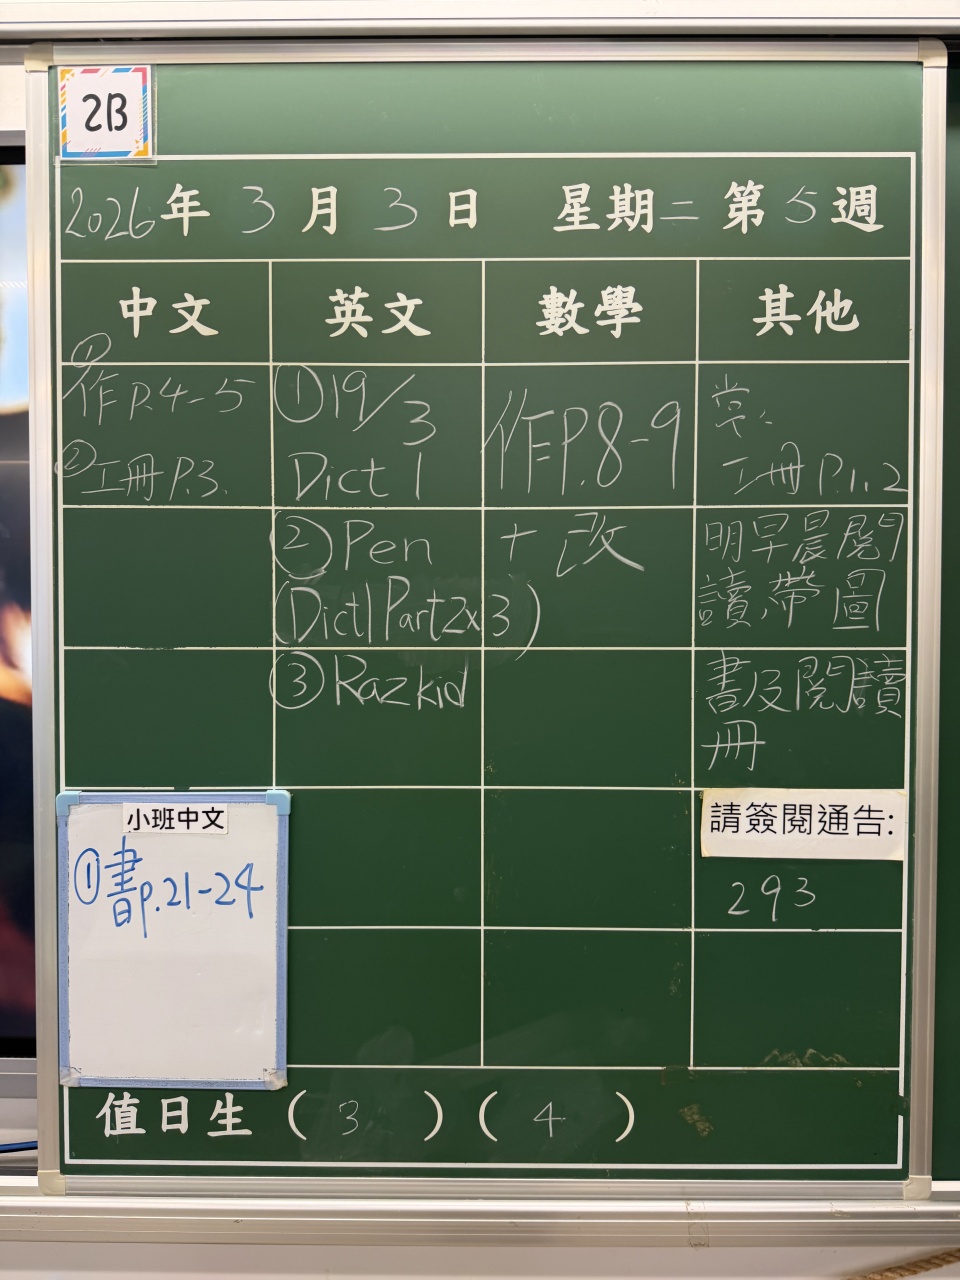 2B
2026年 3 月 3 日 星期二 第 5 週
中文 英文 數學 其他
①
作P.4-5
②工冊P.3.
①19/3
Dict 1
②Pen
(Dict1Part2x3)
③Razkid
作P.8-9
+改
常:
工冊P.1,2
明早晨閱
讀,帶圖
書及閱讀
冊
小班中文
①書p.21-24
請簽閱通告:
293
值日生 ( 3 ) ( 4 )